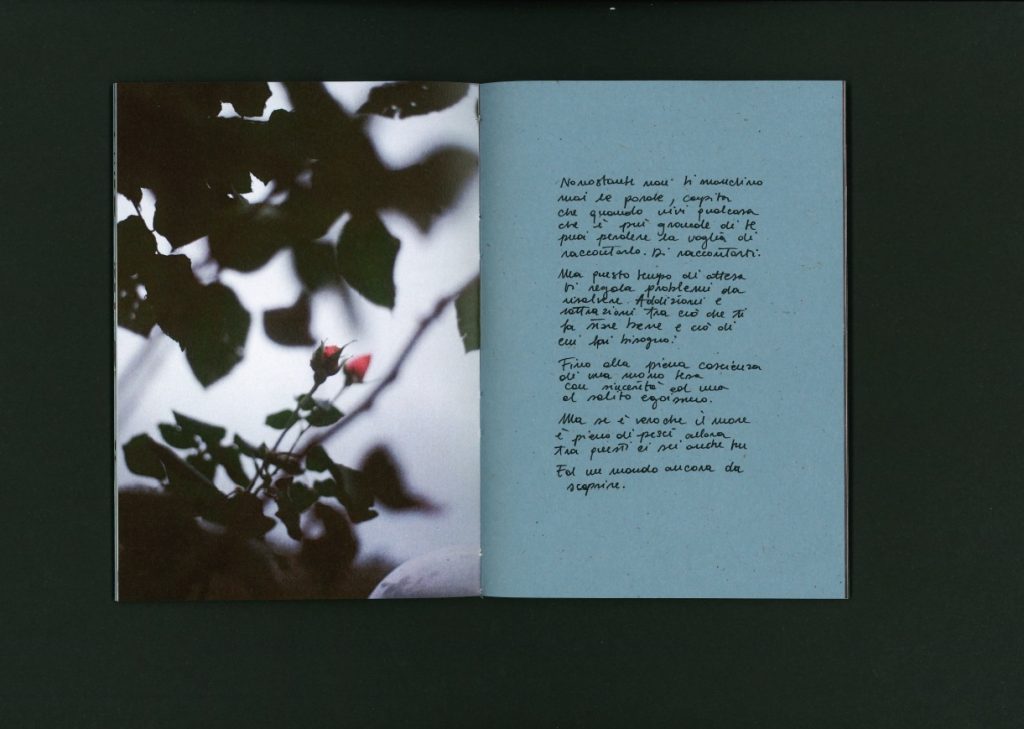 Nonostante non ti manchino
mai le parole, capita
che quando vivi qualcosa
che è più grande di te
puoi perdere la voglia di
raccontarlo. Di raccontarti.
Ma questo tempo di attesa
ti regala problemi da
risolvere. Addizioni e
sottrazioni tra ciò che ti
fa stare bene e ciò di
cui hai bisogno.
Fino alla piena coscienza
di una mano tesa
con sincerità ed una
al solito egoismo.
Ma se è vero che il mare
è pieno di pesci allora
tra questi ci sei anche tu
Ed un mondo ancora da
scoprire.